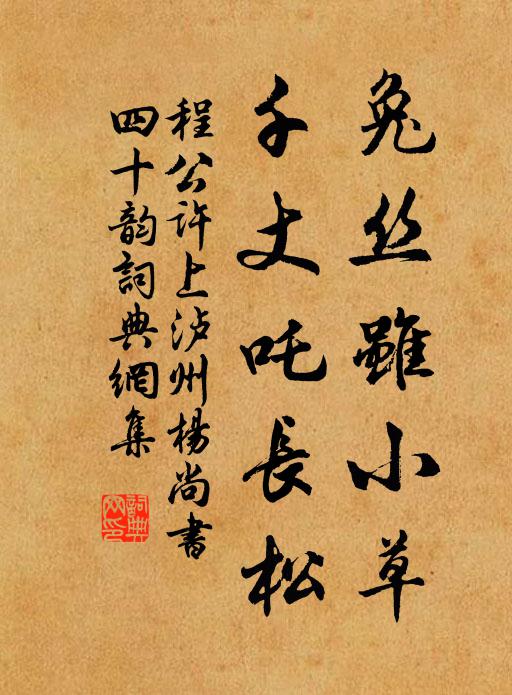 兔丝雖小草
千丈吒長松
程公许上泸州楊尚書
四十韵詞典網集
詞典網印